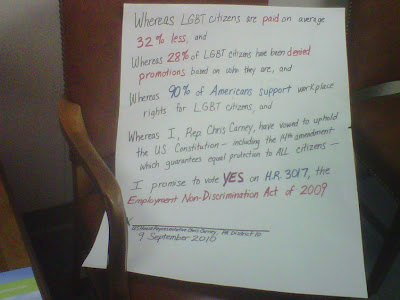 Whereas LGBT citizens are paid on average
32% less, and
Whereas 28% of LGBT citizens have been denied
promotions based on who they are, and
Whereas 90% of Americans support workplace
rights for LGBT citizens, and
Whereas I, Rep. Chris Carney, have vowed to uphold
the US Constitution - including the 14th amendment
which guarantees equal protection to ALL citizens -
I promise to vote YES on H.R. 3017, the
Employment Non-Discrimination Act of 2009
X
US House Representative Chris Carney, PA District 10
9 September 2010